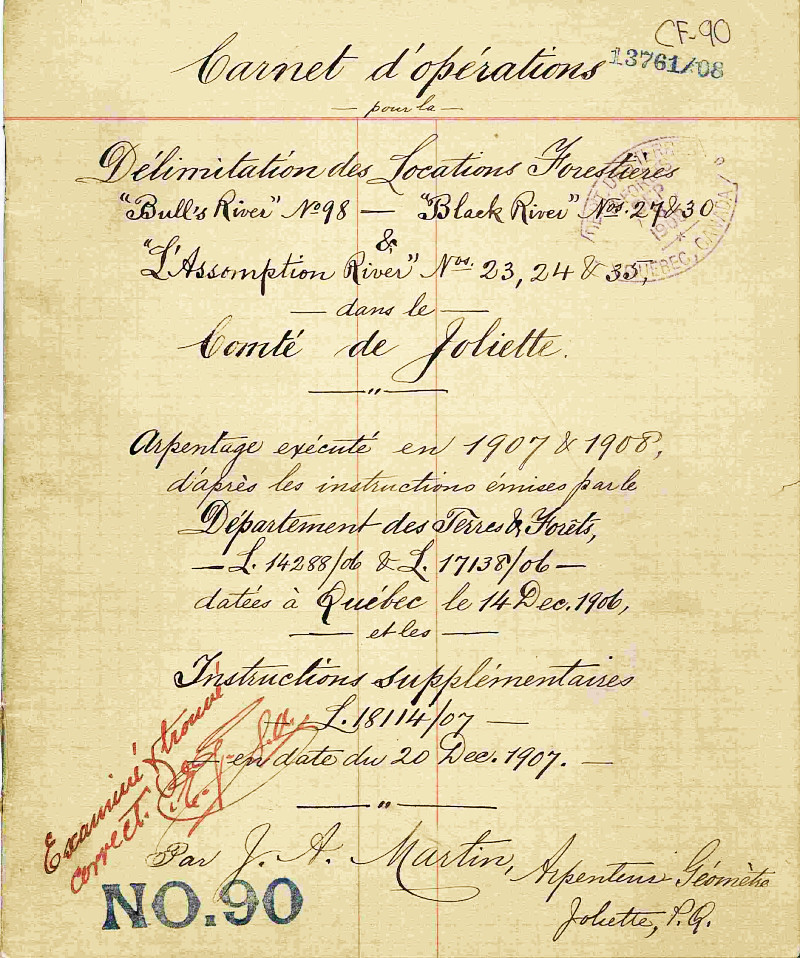 CF-90
13761/08
Carnet d'opérations
— pour la —
Délimitation des Locations Forestières
"Bull's River" No 98 — "Black River" Nos. 27 & 30
&
"L'Assomption River" Nos. 23, 24 & 33,
— dans le —
Comté de Joliette.
Arpentage exécuté en 1907 & 1908,
d'après les instructions émises par le
Département des Terres & Forêts,
— L. 14288/06 & L. 17138/06 —
datées à Québec le 14 Dec. 1906,
— et les —
Instructions supplémentaires
L. 18114/07 —
— en date du 20 Dec. 1907. —
Examiné & trouvé
correct.
Par J. A. Martin, Arpenteur Géomètre
Joliette, P.Q.
NO.90
QUEBEC, CANADA